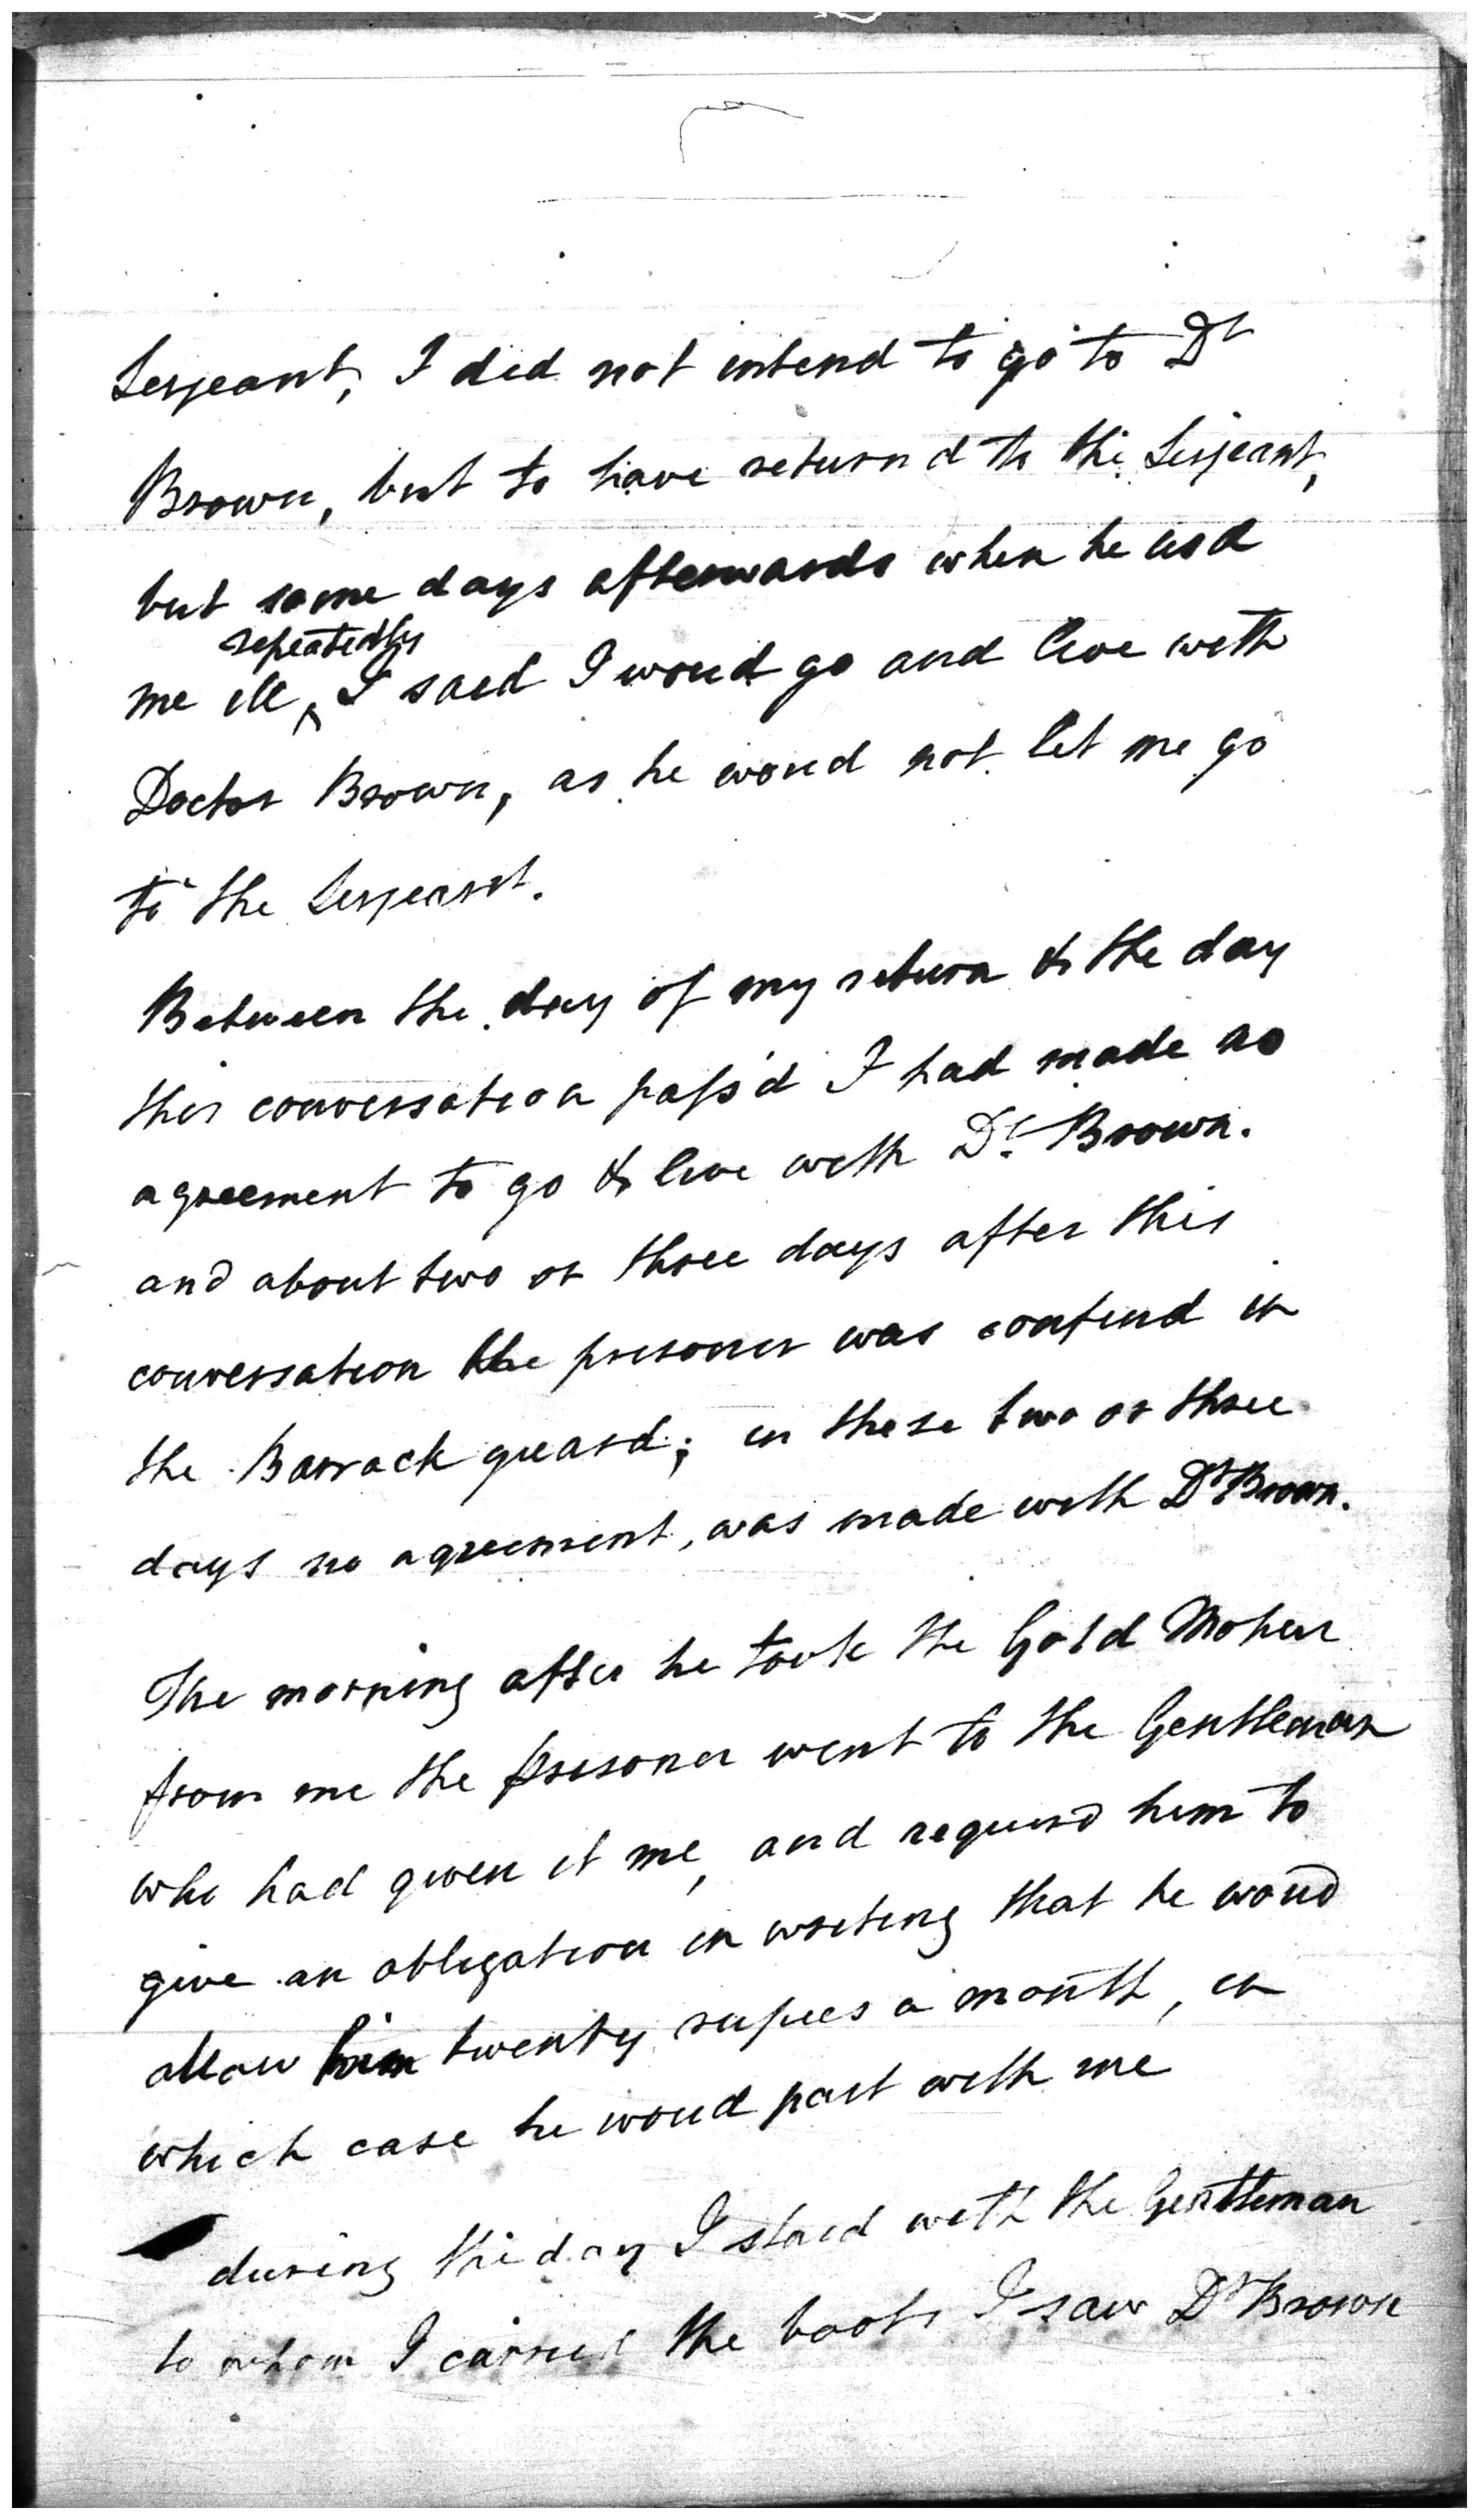 Serjeant, I did not intend to go to Dr
Brown, but to have returnd to the Serjeant,
but some days afterwards when he usd
repeatedly
me ill, I said I woud go and live with
Doctor Brown, as he woud not let me go
to the Serjeant.
Between the day of my return & the day
this conversation pass'd I had made no
agreement to go & live with Dr. Brown.
and about two or three days after this
conversation the prisoner was confind in
the Barrack guard; in these two or three
days no agreement, was made with Dr Brown.
The morning after he took the Gold Moheur
from me the prisoner went to the Gentleman
who had given it me, and requird him to
give an obligation in writing that he woud
allow him twenty rupees a month, in
which case he woud part with me
during the day I staid with the Gentleman
to whom I carried the boots I saw Dr Brown